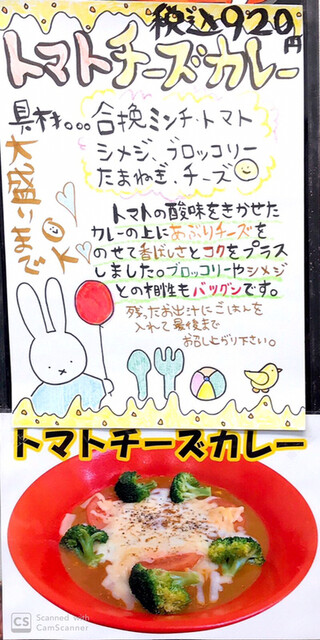 税込920円
トマトチーズカレー
具材...合挽ミンチ・トマト
シメジ、ブロッコリー
たまねぎ、チーズ
大盛りまで
OK
トマトの酸味をきかせた
カレーの上にあぶりチーズを
のせて香ばしさとコクをプラス
しました。ブロッコリーやシメジ
との相性もバツグンです。
残ったお出汁にごはんを
入れて最後まで
お召し上がり下さい。
トマトチーズカレー
CS Scanned with
CamScanner